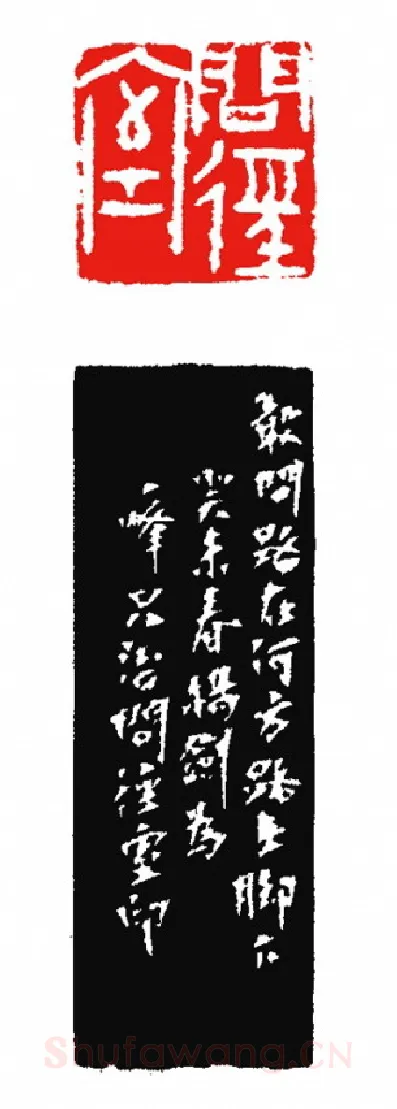 問徑室
敢問路在何方路在脚下
癸未春楊劍為
峰兄治問徑室印
Shufawang.CN